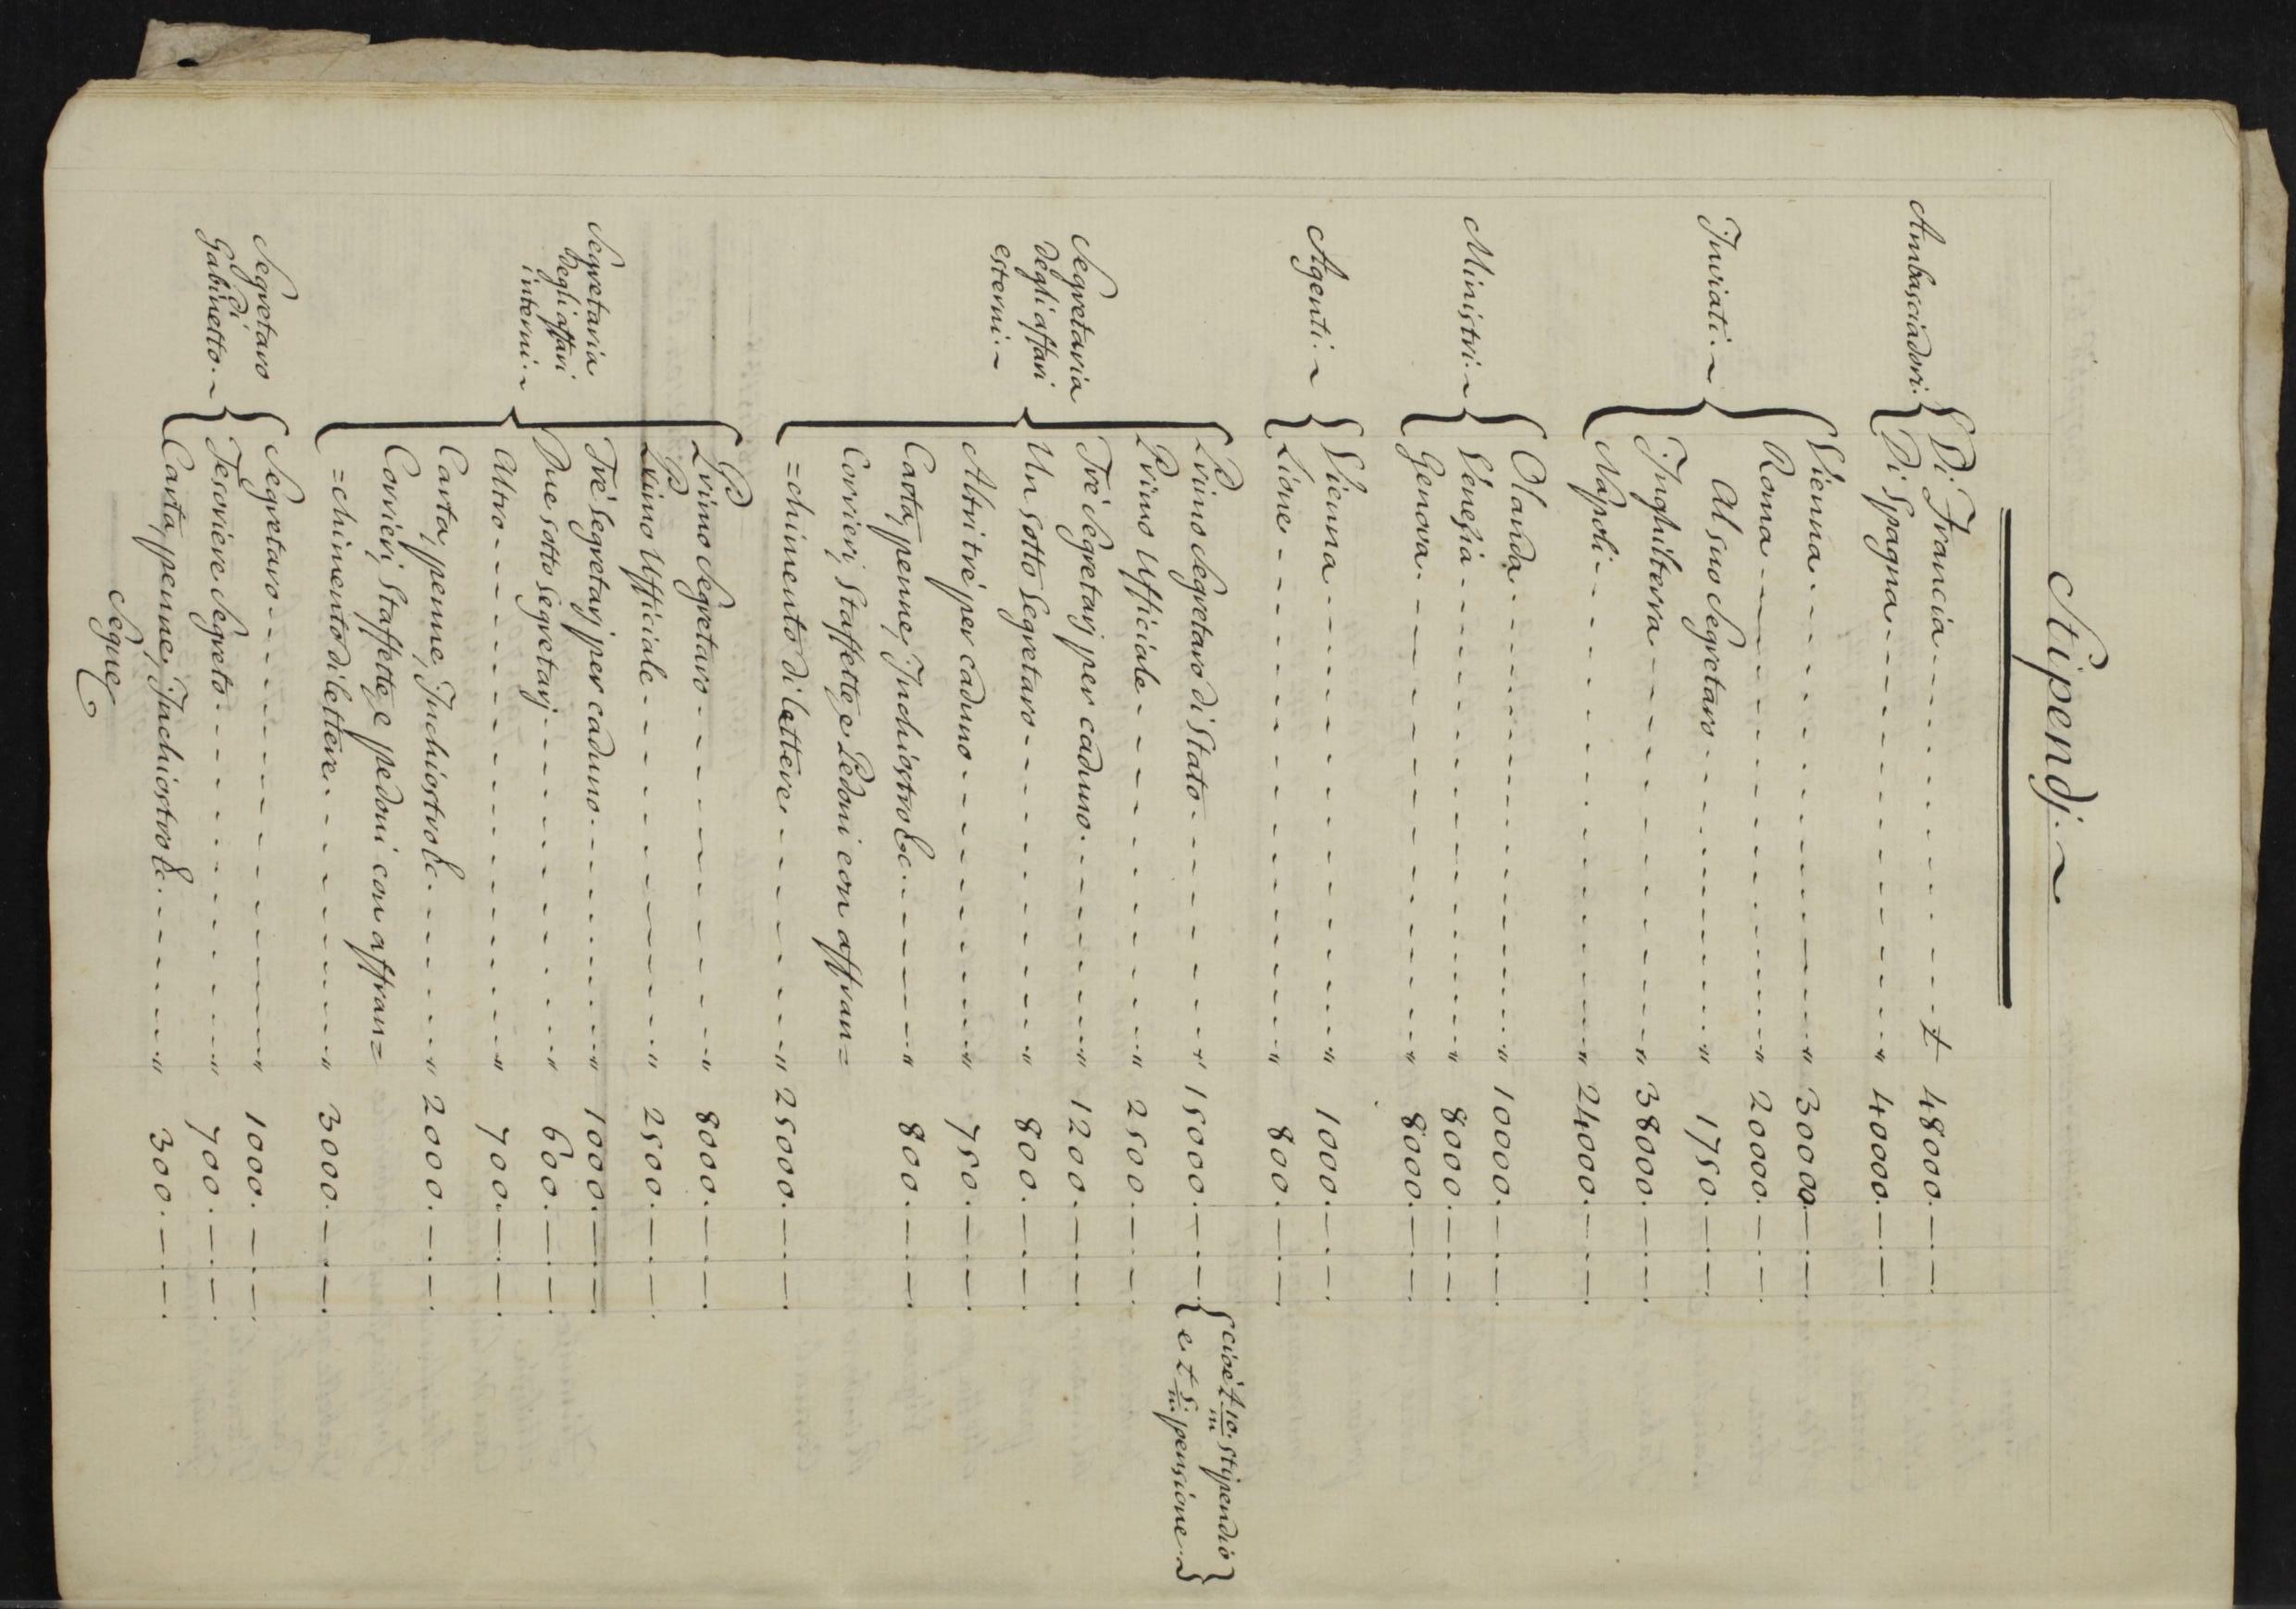 Stipendj. ~
Ambasciadori. { Di Francia - - - - - - - - - - £ 48000. — . — .
Di Spagna - - - - - - - - - - " 40000. — . — .
Inviati. ~ { Vienna - - - - - - - - - - " 30000. — . — .
Roma - - - - - - - - - - " 20000. — . — .
Al suo Segretaro - - - - - - - - " 1750. — . — .
Inghilterra - - - - - - - - - - " 38000. — . — .
Napoli - - - - - - - - - - " 24000. — . — .
Ministri. ~ { Olanda - - - - - - - - - - " 10000. — . — .
Venesia - - - - - - - - - - " 8000. — . — .
Genova - - - - - - - - - - " 8000. — . — .
Agenti. ~ { Vienna - - - - - - - - - - " 1000. — . — .
Lione - - - - - - - - - - " 800. — . — .
Segretaria
degli affari
esterni. ~
{ Primo Segretaro di Stato - - - - - - " 15000. — . — . { cioè £ 10/m. stipendio
e £ 5/m pensione. ~ }
Primo Ufficiale - - - - - - - - " 2500. — . — .
Trè Segretarj per caduno - - - - - - " 1200. — . — .
Un sotto Segretaro - - - - - - - - " 800. — . — .
Altri trè per caduno - - - - - - - - " 750. — . — .
Carta, penne, Inchiostro &c. - - - - - - " 800. — . — .
Corrieri, Staffette, e Pedoni con affran=
=chimento di lettere - - - - - - - - " 25000. — . — .
Segretaria
degli affari
interni. ~
{ Primo Segretaro - - - - - - - - " 8000. — . — .
Primo Ufficiale - - - - - - - - " 2500. — . — .
Trè Segretarj per caduno - - - - - - " 1000. — . — .
Due sotto Segretarj - - - - - - - - " 600. — . — .
Altro - - - - - - - - - - " 700. — . — .
Carta, penne, Inchiostro &c. - - - - - - " 2000. — . — .
Corrieri, Staffette, e pedoni con affran=
=chimento di lettere - - - - - - - - " 3000. — . — .
Segretaro
di
Gabinetto. ~
{ Segretaro - - - - - - - - - - " 1000. — . — .
Tesoriere Segreto - - - - - - - - " 700. — . — .
Carta, penne, Inchiostro &c. - - - - - - " 300. — . — .
Segue